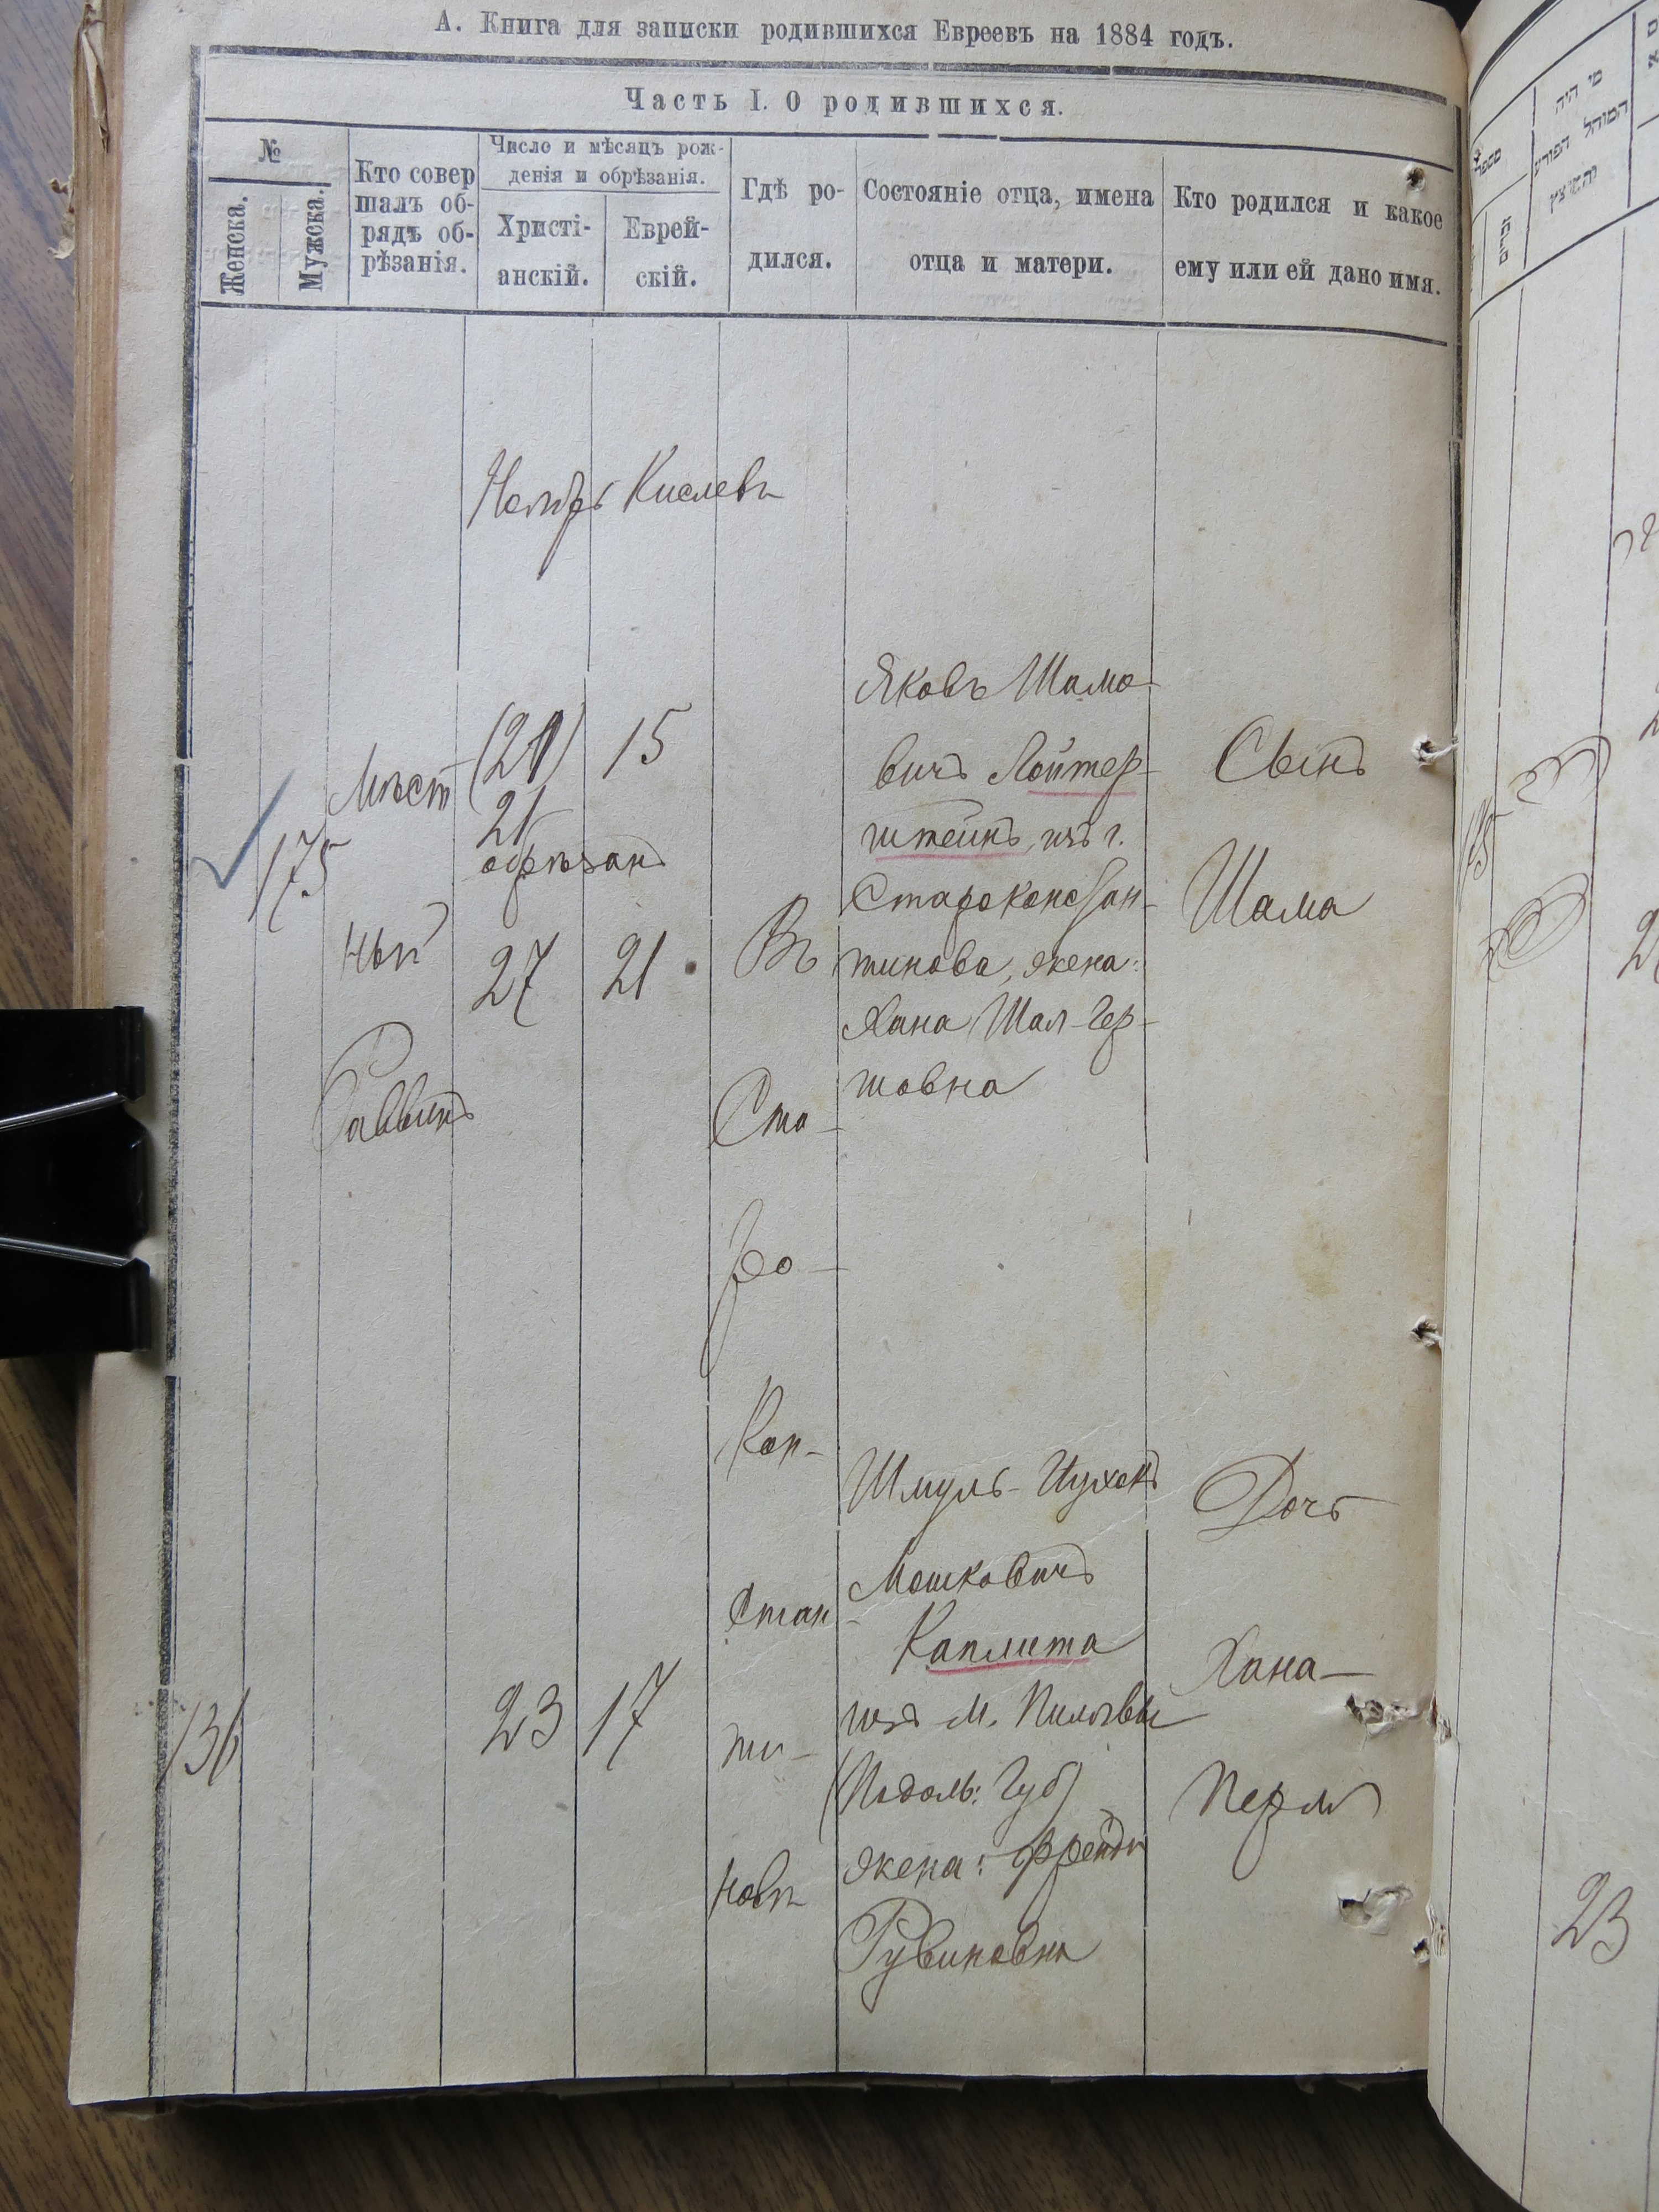 А. Книга для записки родившихся Евреевъ на 1884 годъ.
Часть I. О родившихся.
№
Женска.
Мужска.
Кто совер
шалъ об-
рядъ об-
рѣзанія.
Число и мѣсяцъ рож-
денія и обрѣзанія.
Христі-
анскій.
Еврей-
скій.
Гдѣ ро-
дился.
Состояніе отца, имена
отца и матери.
Кто родился и какое
ему или ей дано имя.
Кислевъ
175
Мѣст
ный
Раввинъ
21
обрѣзанъ
27
15
21
Въ
Ста-
ро-
Кон-
стан-
ти-
новѣ
Яковъ Шамо-
вичъ Лойтер-
штейнъ, изъ г.
Староконстан-
тинова, жена:
Хана Шал-Гер-
шовна
Сынъ
Шама
136
23
17
Шмуль-
Мошковичъ
Каплита
изъ м. Пилявы
(Подоль: Губ)
жена:
Рувиновна
Дочь
Хана-
Перля
מי היה
המוהל הפורע
והמוצץ
מספר
זכרים
175
23